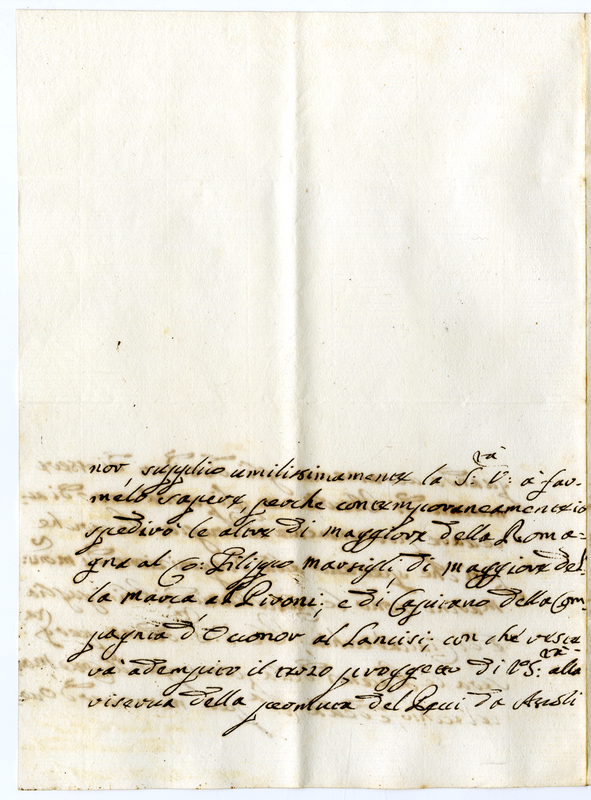 nor, supplico umilissimamente la S:ra V: à far-
melo sapere, perche contemporaneamente io
spedirò le altre di maggiore della Roma=
gna al Co: Filippo Marsiglj, di maggiore del
la marca al Pironi; e di Capitano della Com-
pagnia d'Ouonor al Lancisi; con che restera
va' adempito il progetto di V. S:ra alla
riserva della permuta del da Ascoli